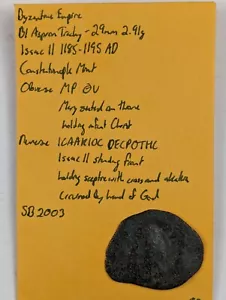 Byzantine Empire
Bl Aspron Trachy - 29mm 2.91g
Isaac II 1185-1195 AD
Constantinople Mint
Obverse MP ΘV
Mary seated on throne
holding infant Christ
Reverse ICAAKIOC DECPOTHC
Isaac II standing front
holding sceptre with cross and akakia
Crowned by hand of God
SB 2003